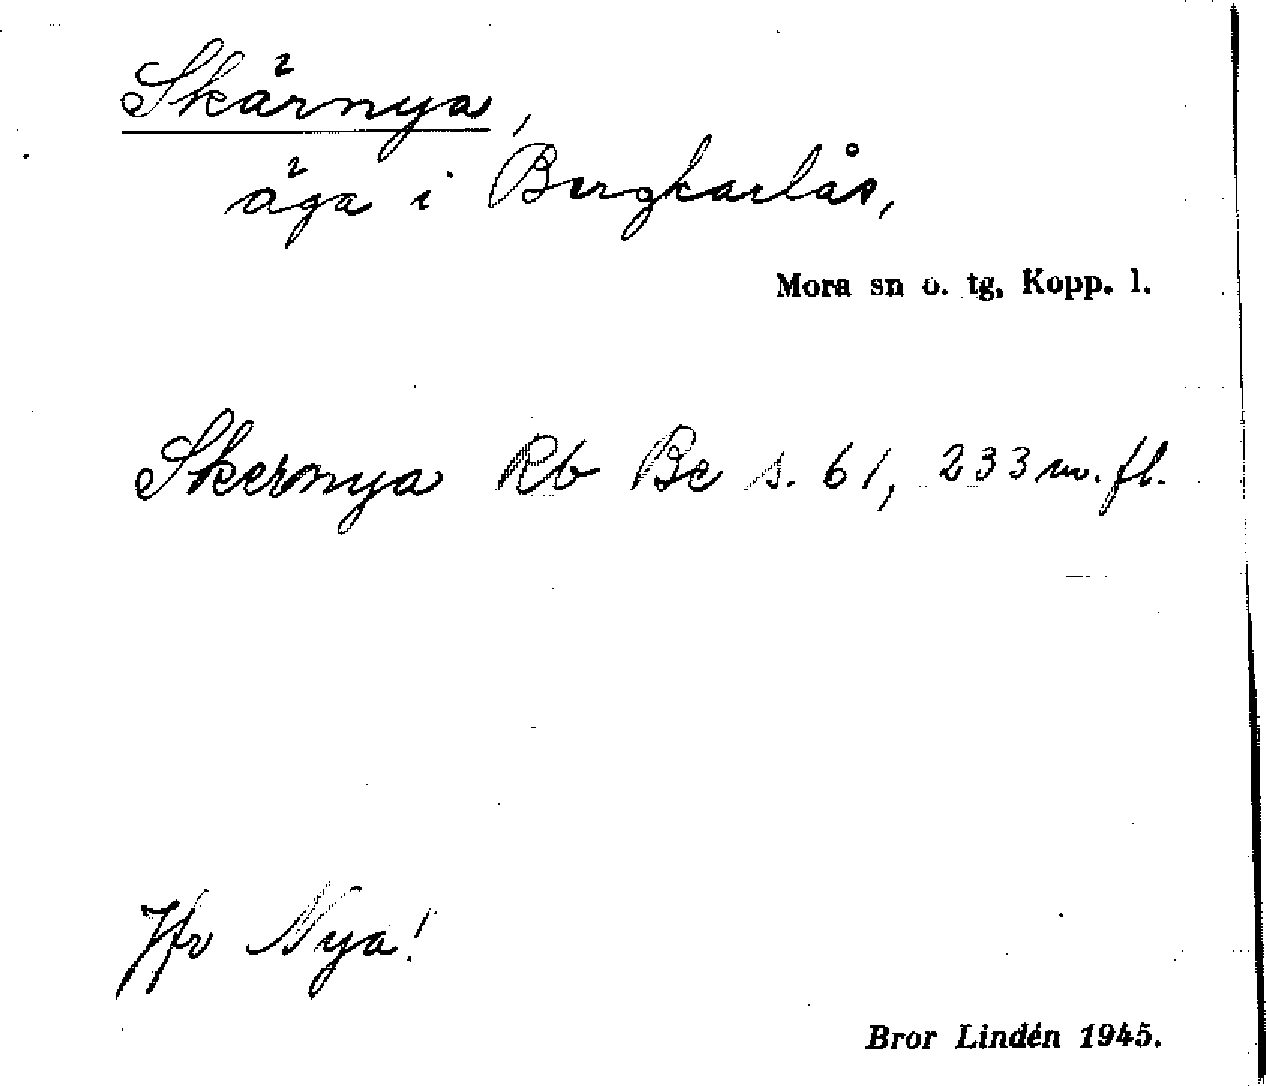 Skärnya,
äga i Bergkarlås,
Mora sn o. tg, Kopp. l.
Skernya Rb Bc s. 61, 233 m. fl.
Jfr Nya!
Bror Lindén 1945.